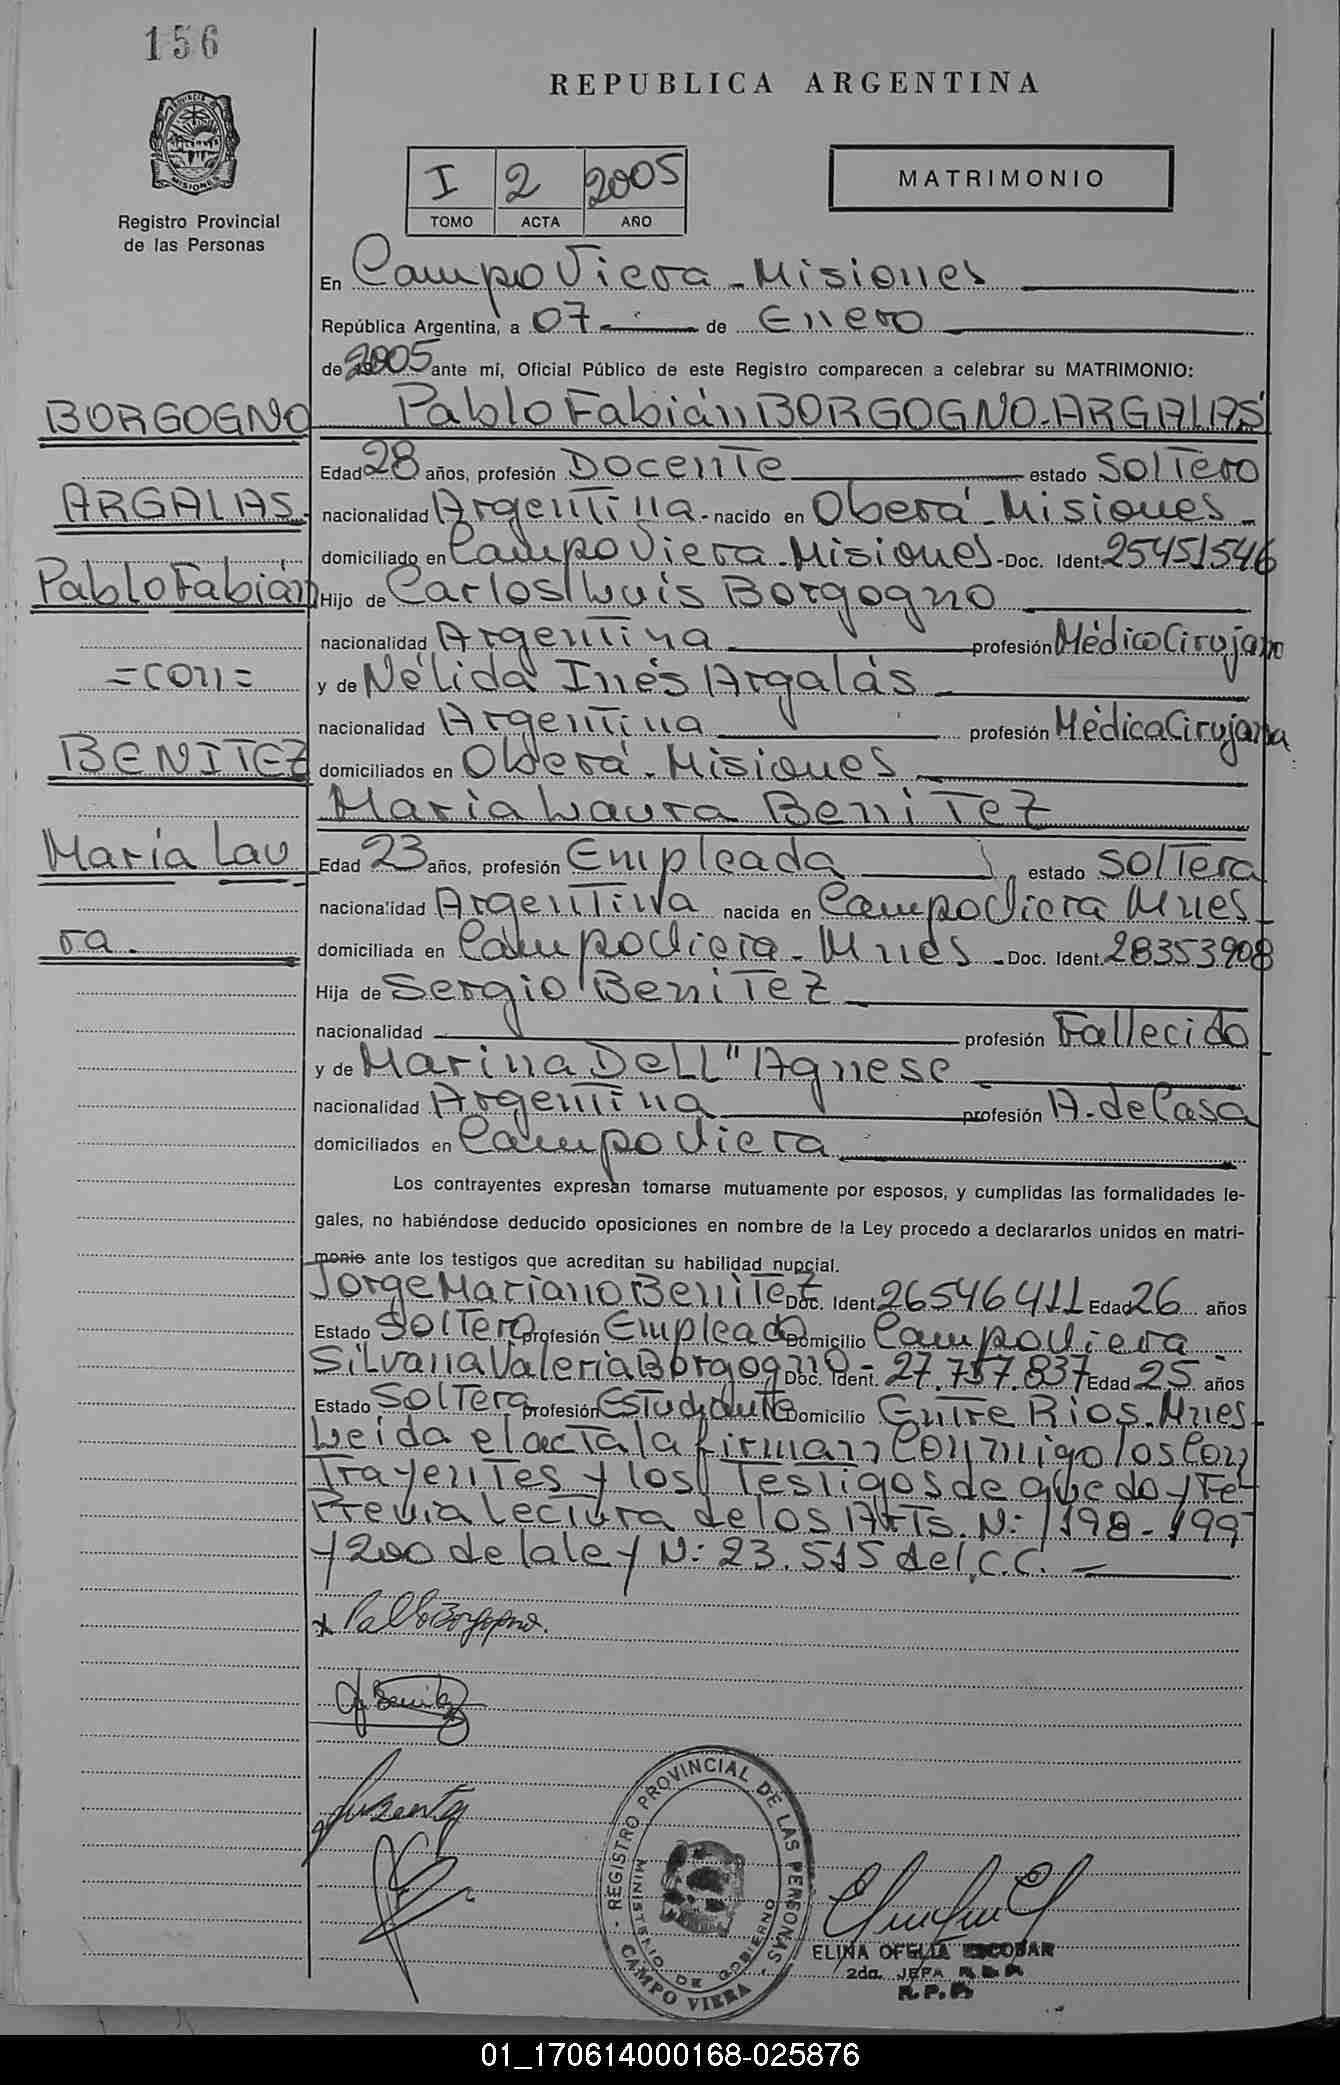 156
REPUBLICA ARGENTINA
PROVINCIA DE MISIONES
I 2 2005
TOMO ACTA AÑO
MATRIMONIO
Registro Provincial
de las Personas
En Campo Viera - Misiones
República Argentina, a 07 de Enero
de 2005 ante mí, Oficial Público de este Registro comparecen a celebrar su MATRIMONIO:
BORGOGNO
ARGALAS.
Pablo Fabián
=con=
BENITEZ
María Lau
ra.
Pablo Fabián BORGOGNO-ARGALAS
Edad 28 años, profesión Docente estado Soltero
nacionalidad Argentina - nacido en Oberá - Misiones -
domiciliado en Campo Viera - Misiones - Doc. Ident. 25451546
Hijo de Carlos Luis Borgogno
nacionalidad Argentina profesión Médico Cirujano
y de Nélida Inés Argalás
nacionalidad Argentina profesión Médica Cirujana
domiciliados en Oberá - Misiones
María Laura Benitez
Edad 23 años, profesión Empleada estado Soltera
nacionalidad Argentina nacida en Campo Viera Mnes -
domiciliada en Campo Viera - Mnes - Doc. Ident. 28353908
Hija de Sergio Benitez
nacionalidad profesión Fallecido
y de Marina Dell" Agnese
nacionalidad Argentina profesión A. de Casa
domiciliados en Campo Viera
Los contrayentes expresan tomarse mutuamente por esposos, y cumplidas las formalidades le-
gales, no habiéndose deducido oposiciones en nombre de la Ley procedo a declararlos unidos en matri-
monio ante los testigos que acreditan su habilidad nupcial.
Jorge Mariano Benitez Doc. Ident. 26546411 Edad 26 años
Estado Soltero profesión Empleado Domicilio Campo Viera
Silvana Valeria Borgogno - Doc. Ident. 27.757.837 Edad 25 años
Estado Soltera profesión Estudiante Domicilio Entre Rios - Mnes
Leida el acta la firman conmigo los con
trayentes y los testigos de que doy Fe
Previa lectura de los Arts. N: 198 - 199
y 200 de la ley N: 23.515 del C.C.
x Pablo Borgogno.
Benitez
REGISTRO PROVINCIAL DE LAS PERSONAS
MINISTERIO DE GOBIERNO
CAMPO VIERA
ELINA OFELIA ESCOBAR
2da. JEFA
R.P.P.
01_170614000168-025876